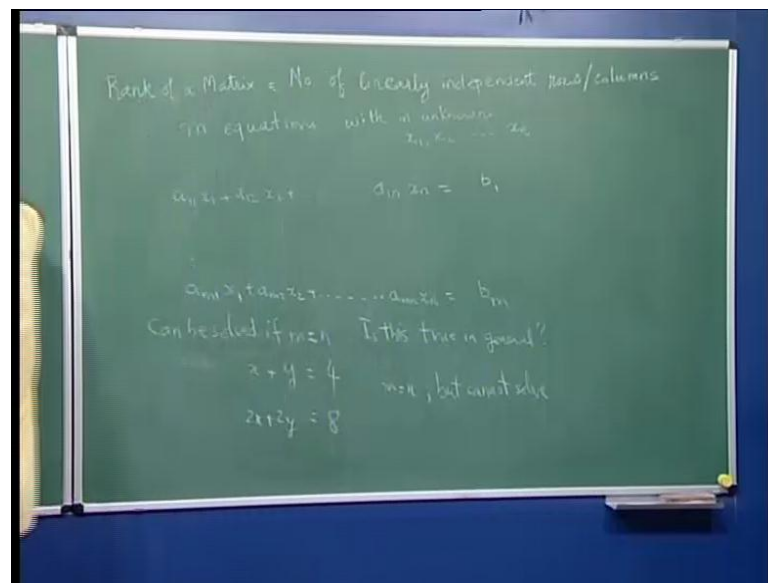 Rank of a Matrix = No of linearly independent rows/columns
m equations with n unknowns
x₁, x₂ ... xₙ
a₁₁ x₁ + a₁₂ x₂ + a₁ₙ xₙ = b₁
:
aₘ₁ x₁ + aₘ₂ x₂ + ....... aₘₙ xₙ = bₘ
Can be solved if m=n Is this true in general?
x + y = 4 m=n, but cannot solve
2x+2y = 8